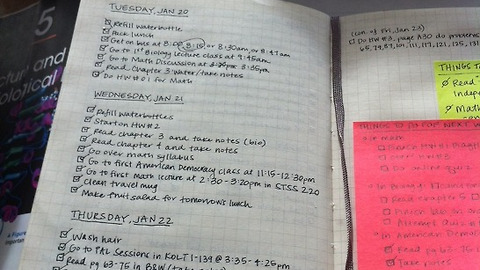 5
TUESDAY, JAN 20
Refill waterbottle
Pack lunch
Get on bus at 8:00, 8:15, or 8:30am, or 8:47am
Go to 1st Biology lecture class at 9:45am
Go to Math Discussion at 3:35pm
Read Chapter 3 Water/take notes
Do HW #01 for Math
WEDNESDAY, JAN 21
Refill Waterbottles
Start on HW #2
Read chapter 3 and take notes (bio)
Read chapter 1 and take notes
Go over math syllabus
Go to first American Democracy class at 11:15-12:30pm
Go to first math lecture at 2:30-3:20pm in STSS 220
Clean travel mug
Make fruit salad for tomorrow's lunch
THURSDAY, JAN 22
Wash hair
Go to PAL Sessions in KOLT 1-139 @ 3:35-4:25pm
Read pg 63-75 in B&W
(con. of Fri, Jan 23)
Do HW #3, page A30 do problems
65, 79, 87, 101, 111, 117, 121, 125, 131
THINGS
Read
Math
THINGS TO DO FOR NEXT
Do online quiz
In American Democra
Read pg 63-75
Take notes